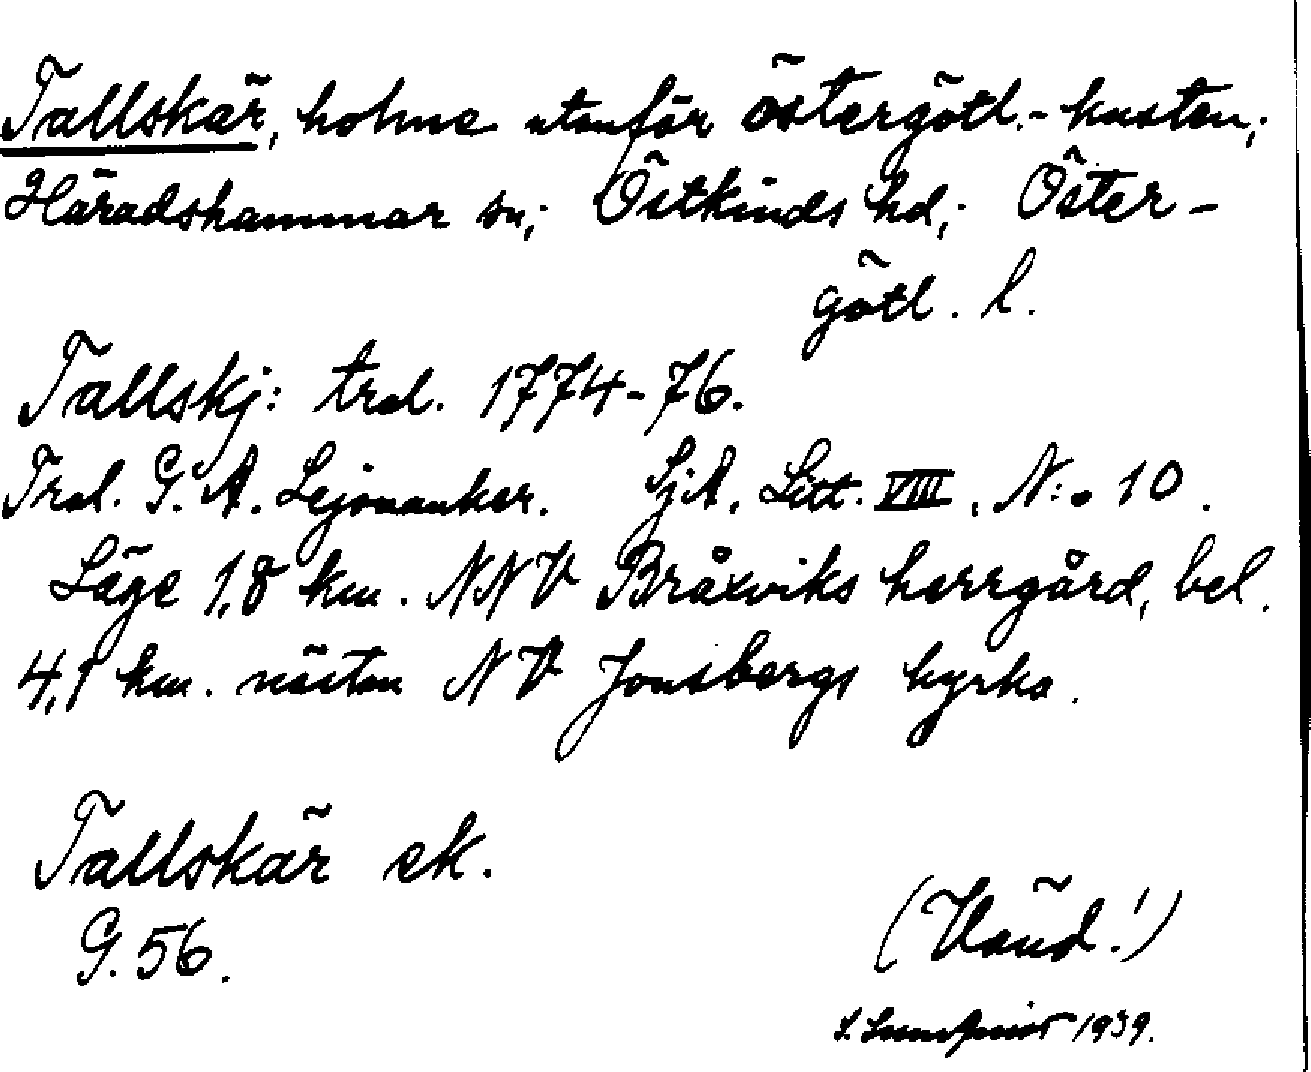 Tallskär, holme utanför östergötl.-kusten;
Häradshammar sn; Östkinds hd; Öster-
götl. l.
Tallskj: trol. 1774-76.
Trol. G. A. Lejonanker. SjA. Litt. VIII, N:o 10.
Läge 1,8 km. NNV Bråxviks herrgård, bel.
4,1 km. nästan NV Jonsbergs kyrka.
Tallskär ek.
G. 56.
(Vänd!)
1939.